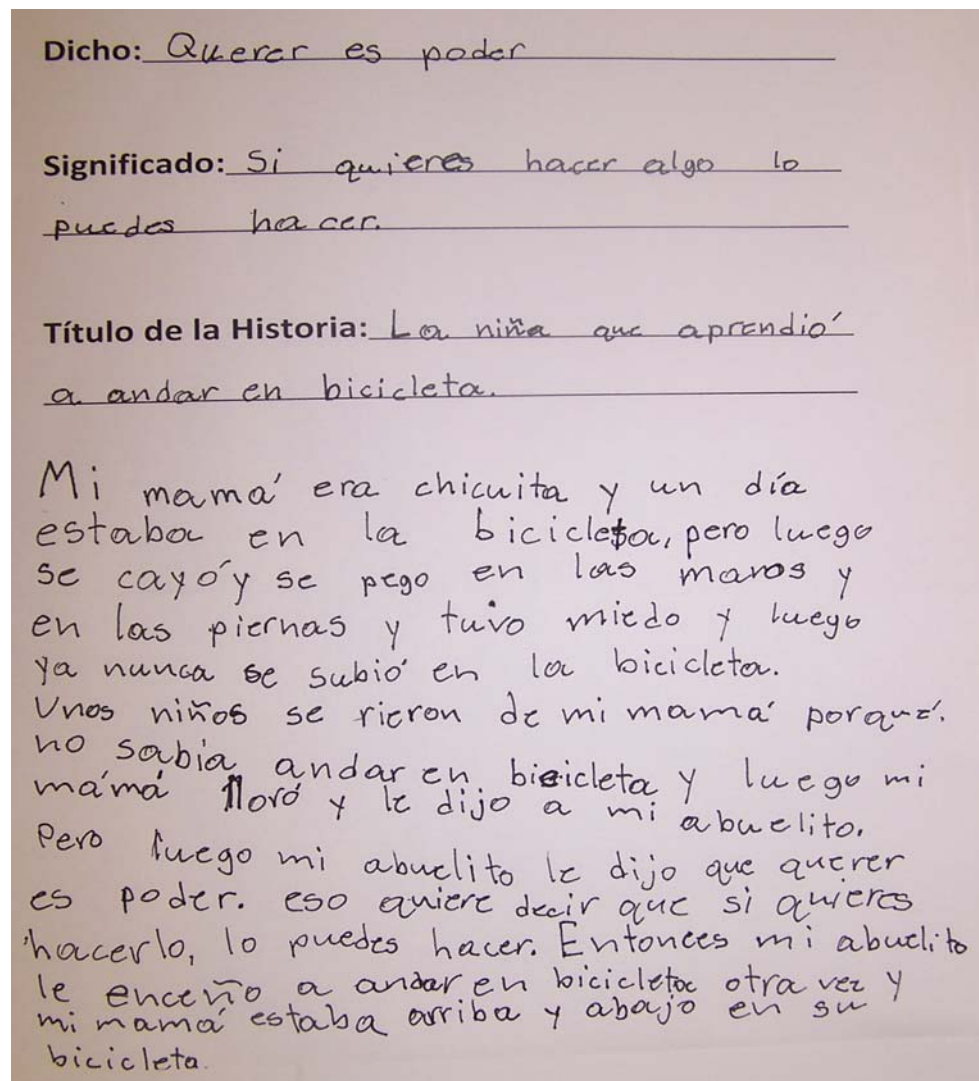 Dicho: Querer es poder
Significado: Si quieres hacer algo lo
puedes hacer.
Título de la Historia: La niña que aprendió
a andar en bicicleta.
Mi mamá era chicuita y un día
estaba en la bicicleta, pero luego
se cayó y se pego en las manos y
en las piernas y tuvo miedo y luego
ya nunca se subió en la bicicleta.
Unos niños se rieron de mi mamá porqué.
no sabia andar en bicicleta y luego mi
mámá lloró y le dijo a mi abuelito.
Pero luego mi abuelito le dijo que querer
es poder. eso quiere decir que si quieres
hacerlo, lo puedes hacer. Entonces mi abuelito
le enceño a andar en bicicleta otra vez y
mi mamá estaba arriba y abajo en su
bicicleta.